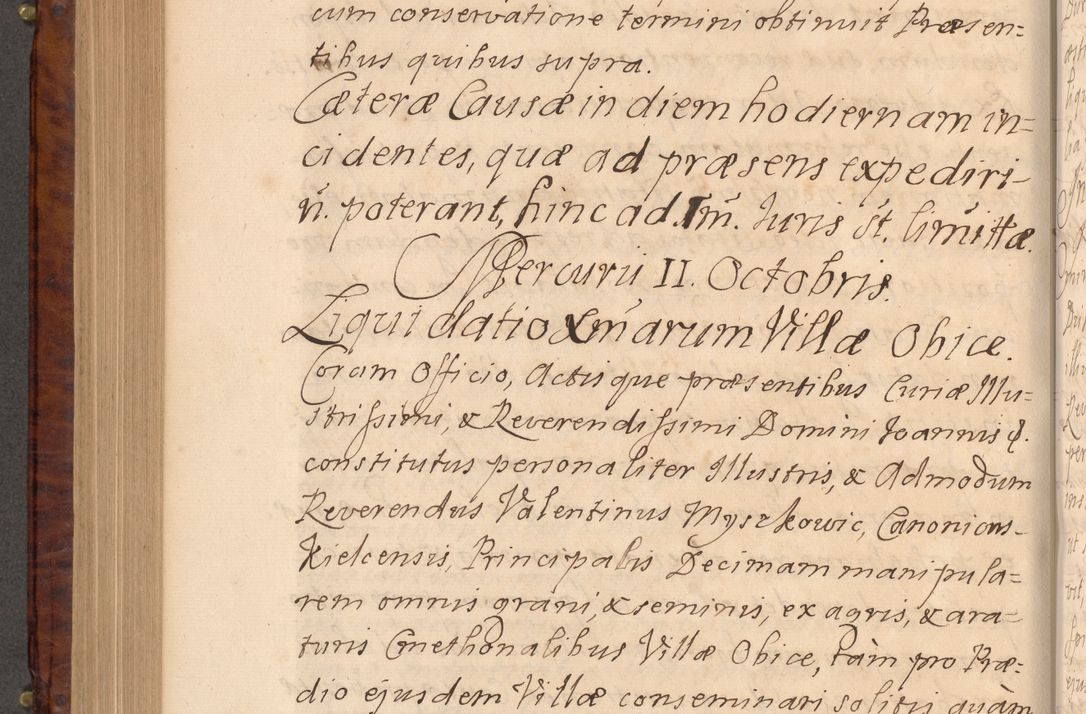 cum conservatione termini obtinuit Præsen=
tibus quibus supra.
Cæteræ Causæ in diem hodiernam in=
cidentes, quæ ad præsens expediri
ñ. poterant, hinc ad. Im̃. Iuris St. limittæ.
Mercurii II. Octobris.
Liquidatio Xm̃arum Villæ Obice.
Coram Officio, Actisque præsentibus Curiæ Illu=
strissimi, & Reverendissimi Domini Ioannis
constitutus personaliter Illustris, & Admodum
Reverendus Valentinus Myszkowic, Canonicus
Kielcensis, Principalis Decimam manipula=
rem omnis grani, & seminis, ex agris, & ara=
turis Cmethonalibus Villæ Obice, tàm pro Præ=
dio ejusdem Villæ conseminari solitis quàm